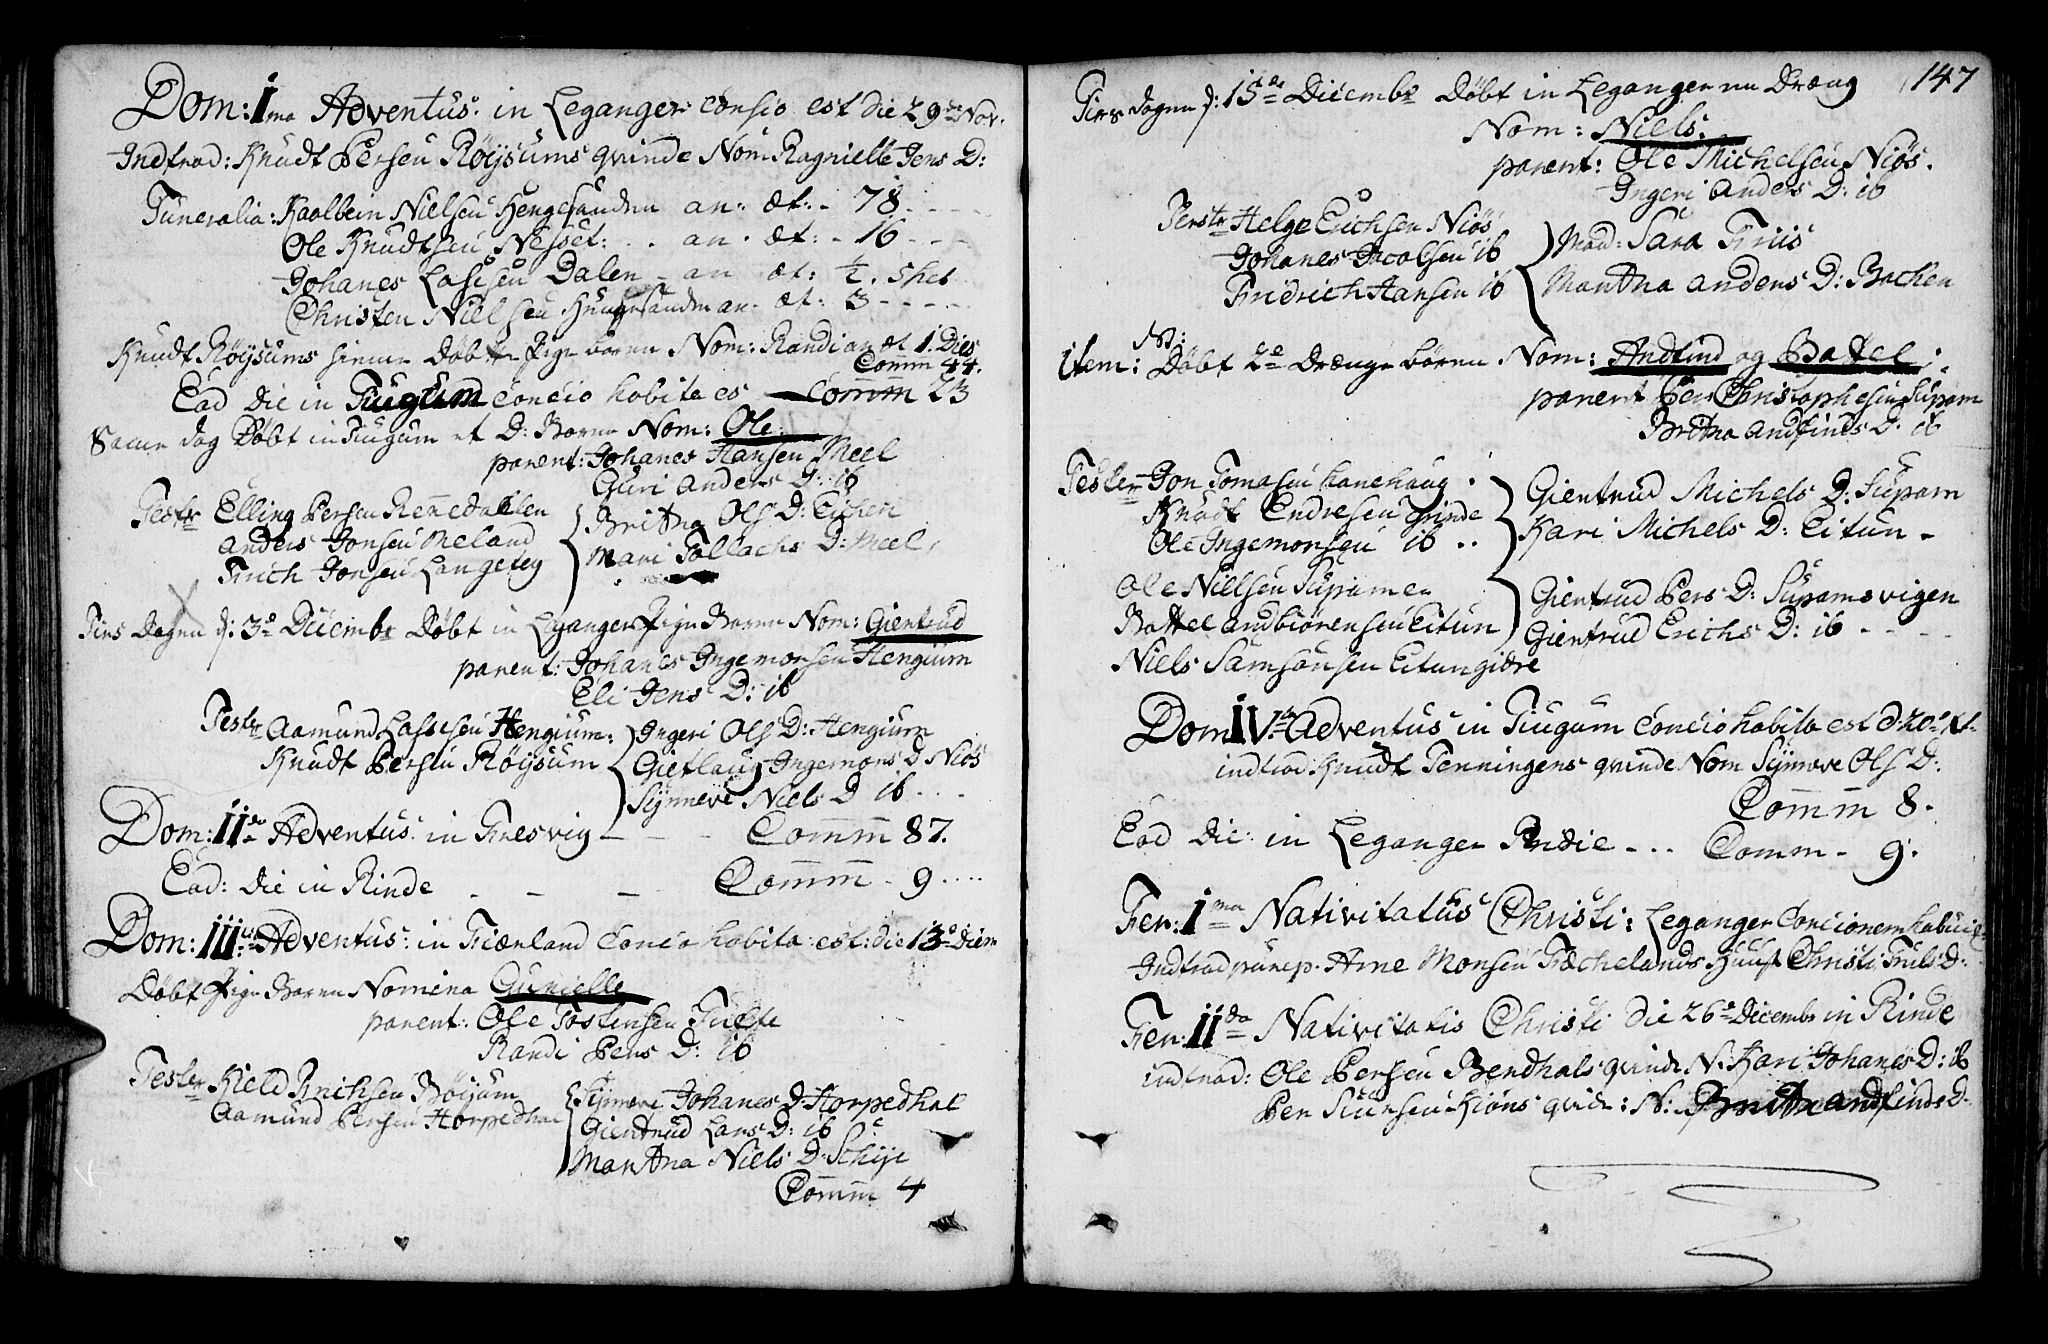 Dom: Ima Adventus: in Leganger: Consio est Die 29de Nov.
Indtrad: Knudt Persen Röysums qvinde Nom: Ragnielle Jens D:
Funeralia: Kaalbein Nielsen Hengesanden an: æt: - 78 . - -
Ole Knudtsen Nesset: . . an . æt: - 16 - - -
Johanes Lassesen Dalen - an æt: ½ . 
Christen Nielsen an. æt: 3 - - - -
Knudt Röysums Döbt Pige baren Nom: Randi an æt 1. Dies
Comm 44.
Ead Die in Tiugum Concio habita es Comm 23
Same dag Döbt in Tiugum et D: Baren Nom: Ole
parent: Johanes Hansen Meel
Guri Anders D: ib
Test: Elling Persen Rennedahlen
Anders Jonsen Meland
Erich Jonsen Langeteg
Britha Ols D: Eichen
Mari Tollachs D: Meel,
Tirs Dagen d: 3e Dicembr Döbt in Leganger Pige Baren Nom: Giertrud
parent: Johanes Ingemonsen Hengium
Eli Jens D: ib
Tester Aamund Lassesen Hengium:
Knudt Persen Röysum
Ingeri Ols D: Hengium
Gietlaug Ingemons D Niös
Synneve Niels D ib . . .
Dom: IIda Adventus: in Fresvig - - - Comm 87.
Ead: die in Rinde - - - Comm - 9 ....
Dom: IIItia Adventus: in Fiærland Concio habita: est: die 13e Diem
Döbt Pige Baren Nomina Gunielle
parent: Ole Tostensen Tufte
Randi Pers D: ib
Tester Kield Erichsen Böyum
Aamund Persen Horpedhal
Synneve Johanes D: Horpedhal
Giertrud Lars D: ib
Martha Niels D: Schije
Comm 4
147
Tirs dagen d: 15de Dicembr Döbt in Leganger en Dræng
Nom: Niels:
parent: Ole Michelsen Niös.
Ingeri Anders D: ib
Testr Helge Erichsen Niös
Johanes Jacobsen ib
Fridrich Hansen ib
Mad: Sara Friis
Martha Anders D: Bachen
item: Döbt 2e Drænge Bören Nom: Andfind og Battel:
parent Per Christophersen Supam
Britha Andfinds D: ib
Tester Jon Tomasen Hanehaug .
Knudt Endresen Grinde
Ole Ingemonsen ib ..
Ole Nielsen Supamen
Battel Andbiörensen Eitun
Niels Samsonsen Eitungidre
Giertrud Michels D: Supam
Kari Michels D: Eitun -
Giertrud Pers D: Supamsvigen
Giertrud Erichs D: ib - - - -
Dom IVta Adventus in Tiugum Concio habita est d: 20e
indtrad Knudt Tenningens qvinde Nom Synneve Ols D:
Comm 8.
Ead Die: in Leganger - .. Comm - 9.
Fer: Ima Nativitatus Christi: Leganger Concionem habuit
Indtrad Arne Monsen Christi D:
Fer: IIda Nativitatis Christi Die 26e Dicembr in Rinde
indtrad: Ole Persen Berdhals qvinde N: Kari Johanes D: ib
Per Siursen N: Brita Andfinds D.